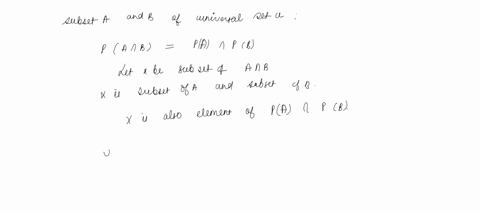 subset A and B of universal set u :
P (A ∩ B) = P(A) ∩ P(B)
Let x be subset of A ∩ B
x is subset of A and subset of B.
x is also element of P(A) ∩ P(B)